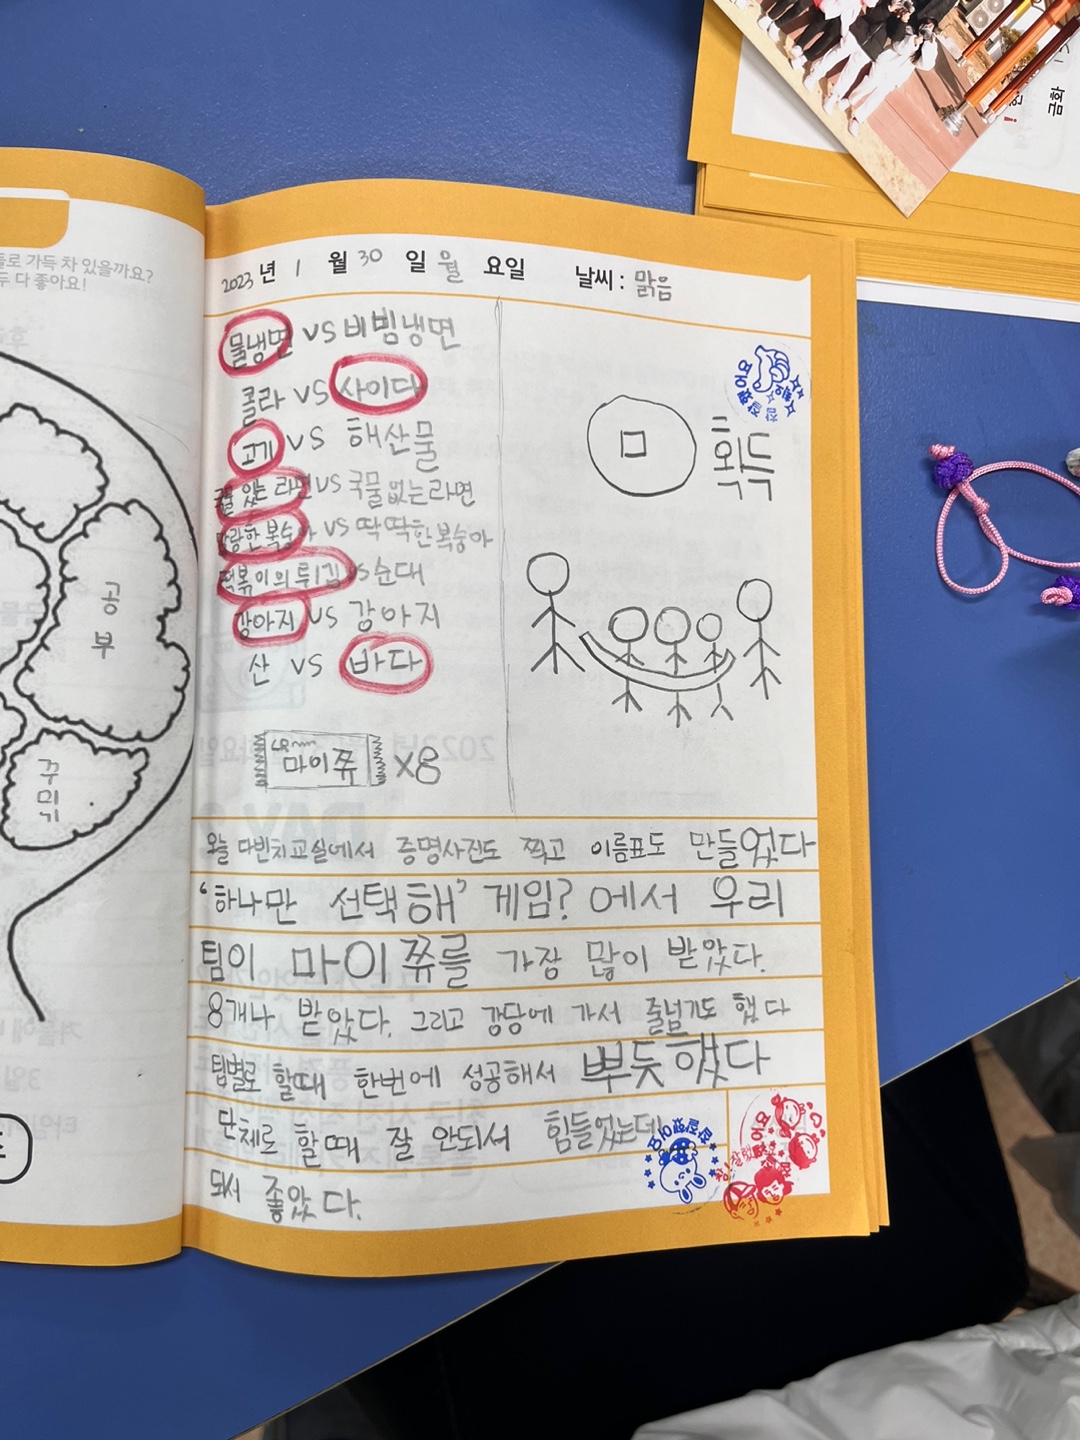 들로 가득 차 있을까요?
두 다 좋아요!
공
부
꾸
미
기
금화
2023년 1 월 30 일 월 요일 날씨 : 맑음
물냉면 VS 비빔냉면
콜라 VS 사이다
고기 VS 해산물
국물 있는 라면 VS 국물 없는 라면
말랑한 복숭아 VS 딱딱한 복숭아
떡볶이의 튀김 VS 순대
강아지 VS 강아지
산 VS 바다
마이쮸 X8
획득
참 잘했어요
오늘 다빈치교실에서 증명사진도 찍고 이름표도 만들었다
'하나만 선택해' 게임? 에서 우리
팀이 마이쮸를 가장 많이 받았다.
8개나 받았다. 그리고 강당에 가서 줄넘기도 했다
팀별로 할때 한번에 성공해서 뿌듯했다
단체로 할때 잘 안되서 힘들었는데
되서 좋았다.
참! 잘했어요